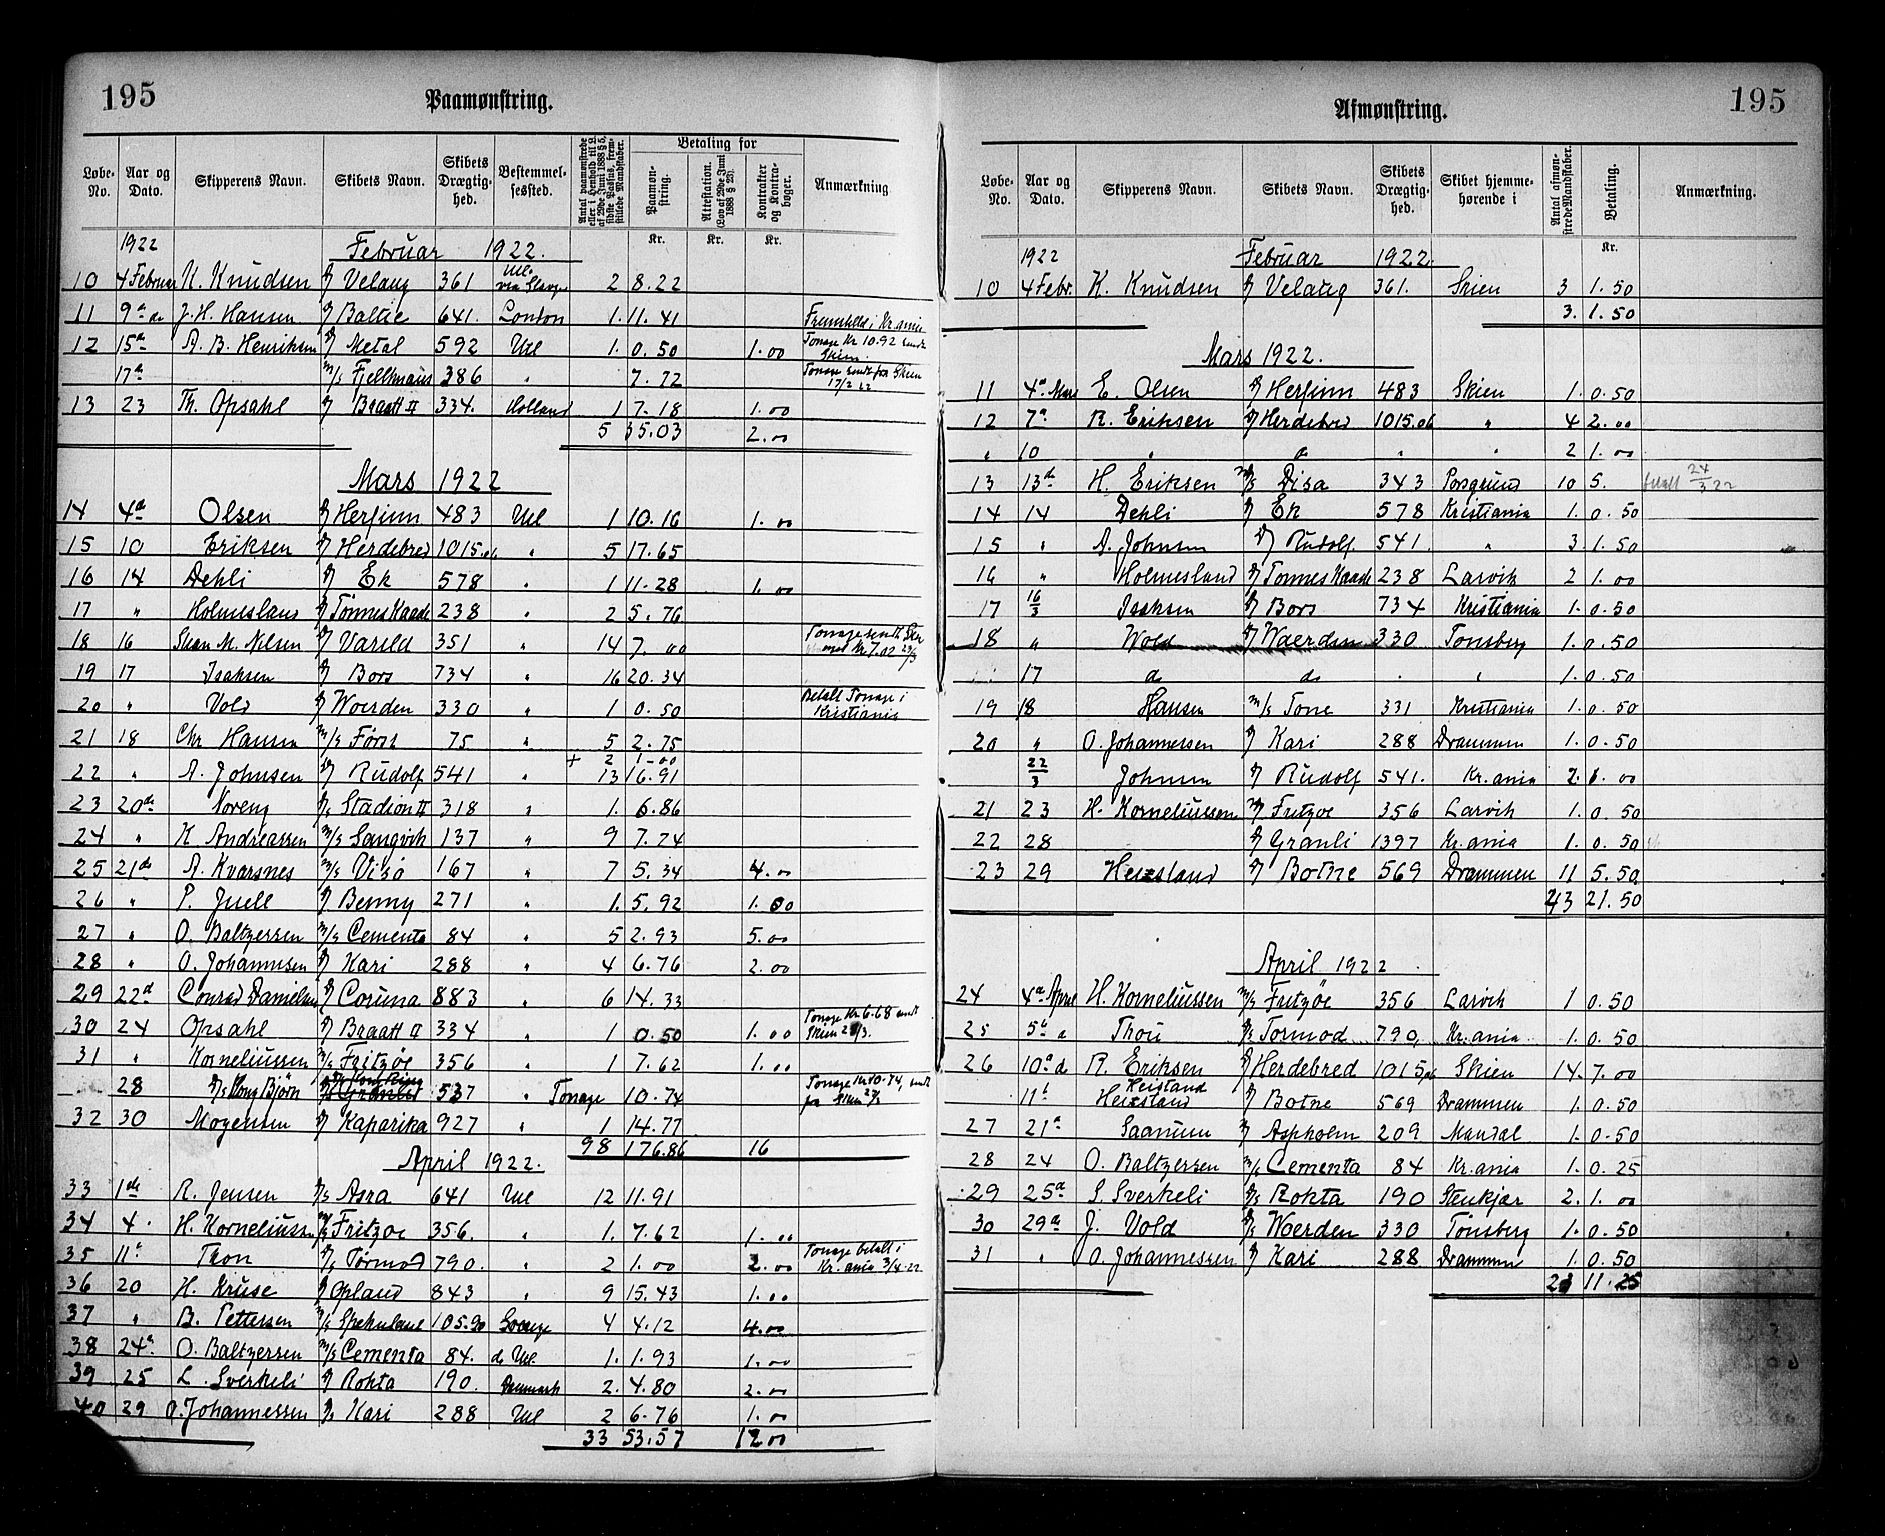 195
Paamønstring.
Løbe-No. | Aar og Dato. | Skipperens Navn. | Skibets Navn. | Skibets Drægtig-hed. | Bestemmel-sessted. | Antal paamønstrede eller i Henhold til L. af 29de Juni 1888 § 5, sidste Passus, frem-stillede Mandskaber. | Betaling for | Paamøn-string. | Attestation. (Lov af 29de Juni 1888 § 25). | Kontrakter og Kontra-bøger. | Anmærkning
Kr. Kr. Kr.
1922 Februar 1922.
10 4 Februar K. Knudsen Velaug 361 Utl. via 2 8.22
11 9de J. H. Hansen Baltic 641. London 1. 11.41 i Kr.ania
12 15de A. B. Henriksen Metal 592 Utl 1. 0.50 1.00 Tonage Kr 10.92 sendt Skien.
17de M/s 386 " 7.72 Tonage sendt fra Skien 17/2 22
13 23 Th. Opsahl Braatt II 334. Holland 1 7.18 1.00
5 35.03 2.00
Mars 1922
14 4de Olsen Herfinn 483 Utl 1 10.16 1.00
15 10 Eriksen Herdebred 1015.06 " 5 17.65
16 14 Dehli Ek 578 " 1 11.28 1.00
17 " Holmesland Tønnes Kaade 238 " 2 5.76
18 16 M. Nilsen Varild 351 " 14 7.00 Tonage sendt Kr 7.02 23/3
19 17 Isaksen Bors 734 " 16 20.34
20 " Vold Woerden 330 " 1 0.50 Betalt Tonage i Kristiania
21 18 Chr Hansen M/s Først 75 " 5 2.75
+ 2 1-00
22 " A. Johnsen Rudolf 541 " 13 16.91
23 20de Noreng Stadion II 318 " 1. 6.86
24 " K Andreassen M/s Sangvik 137 " 9 7.74
25 21de A. Kvarsnes M/s Visø 167 " 7 5.34 4.00
26 " P. Juell Benny 271 " 1. 5.92 1.00
27 " O. Baltzersen M/s Cementa 84 " 5 2.93 5.00
28 " O. Johannesen Kari 288 " 4 6.76 2.00
29 22d Conrad Danielsen Coruna 883 " 6 14.33
30 24 Opsahl Braatt II 334 " 1 0.50 1.00 Tonage Kr 6.68 sendt Skien
31 " Korneliussen M/s Fritzøe 356 " 1 7.62 1.00
28 Kong Bjørn Kong Ring 537 " Tonage 10.74 Tonage Kr 10.74, sendt fra Skien
32 30 Mogensen Kaparika 927 " 1 14.77
98 176.86 16
April 1922.
33 1de R. Jensen Asra 641 Utl 12 11.91
34 4. H. Korneliussen Fritzoe 356. " 1. 7.62 1.00
35 11te Thon Tørmod 790. " 2 1.00 2.00 Tonage betalt i Kr.ania 3/4-22
36 20 H. Kruse Opland 843 " 9 15.43 1.00
37 " B. Pettersen 105.90 4 4.12 4.00
38 24de O. Baltzersen M/s Cementa 84. do Utl. 1. 1.93 1.00
39 25 L. Sverkeli Rokta 190. Danmark 2. 4.80 2.00
40 29 O. Johannessen Kari 288 Utl 2 6.76 1.00
33 53.57 12.00
195
Afmønstring.
Løbe-No. | Aar og Dato. | Skipperens Navn. | Skibets Navn. | Skibets Drægtig-hed. | Skibet hjemme-hørende i | Antal afmøn-strede Mandskaber. | Betaling. | Anmærkning.
Kr.
1922 Februar 1922.
10 4 Febr. K. Knudsen Velaug 361. Skien 3 1.50
3. 1.50
Mars 1922.
11 4de Mars E. Olsen Herfinn 483 Skien 1. 0.50
12 7de R. Eriksen Herdebred 1015.06 " 4 2.00
" 10 " " " " 2 1.00
13 13de H. Eriksen M/s Disa 343 Porsgrund 10 5. betalt 24/3 22
14 14 Dehli Ek 578 Kristiania 1. 0.50
15 " A. Johnsen Rudolf. 541. " 3 1.50
16 " Holmesland Tonnes Kaade 238 Larvik 2 1.00
17 16/3 Isaksen Bors 734 Kristiania 1. 0.50
18 " Wold Woerden 330 Tonsberg 1. 0.50
17 do do " " 1. 0.50
19 18 Hansen M/s Tone 331 Kristiania 1. 0.50
20 " O. Johannessen Kari 288 Drammen 1. 0.50
22/3 Johnsen Rudolf 541. Kr.ania 2. 1.00
21 23 H. Korneliussen Fritzoe 356 Larvik 1. 0.50
22 28 Granli 1397 Kr.ania 1. 0.50
23 29 Heistland Botne 569 Drammen 11 5.50
43 21.50
April 1922
24 4de April H. Korneliussen M/s Fritzøe 356 Larvik 1 0.50
25 5te Thon Tormod 790, Kr.ania 1. 0.50
26 10de R. Eriksen Herdebred 1015,06 Skien 14. 7.00
11t Heistland Heistand Botne 569 Drammen 1. 0.50
27 21de Saanum Aspholm 209 Mandal 1. 0.50
28 24 O. Baltzersen M/s Cementa 84 Kr.ania 1. 0.25
29 25de S. Sverkeli Rokta 190 Stenkjær 2. 1.00
30 29de J. Vold Woerden 330 Tönsberg 1. 0.50
31 " O. Johannessen Kari 288 Drammen 1. 0.50
23 11.25